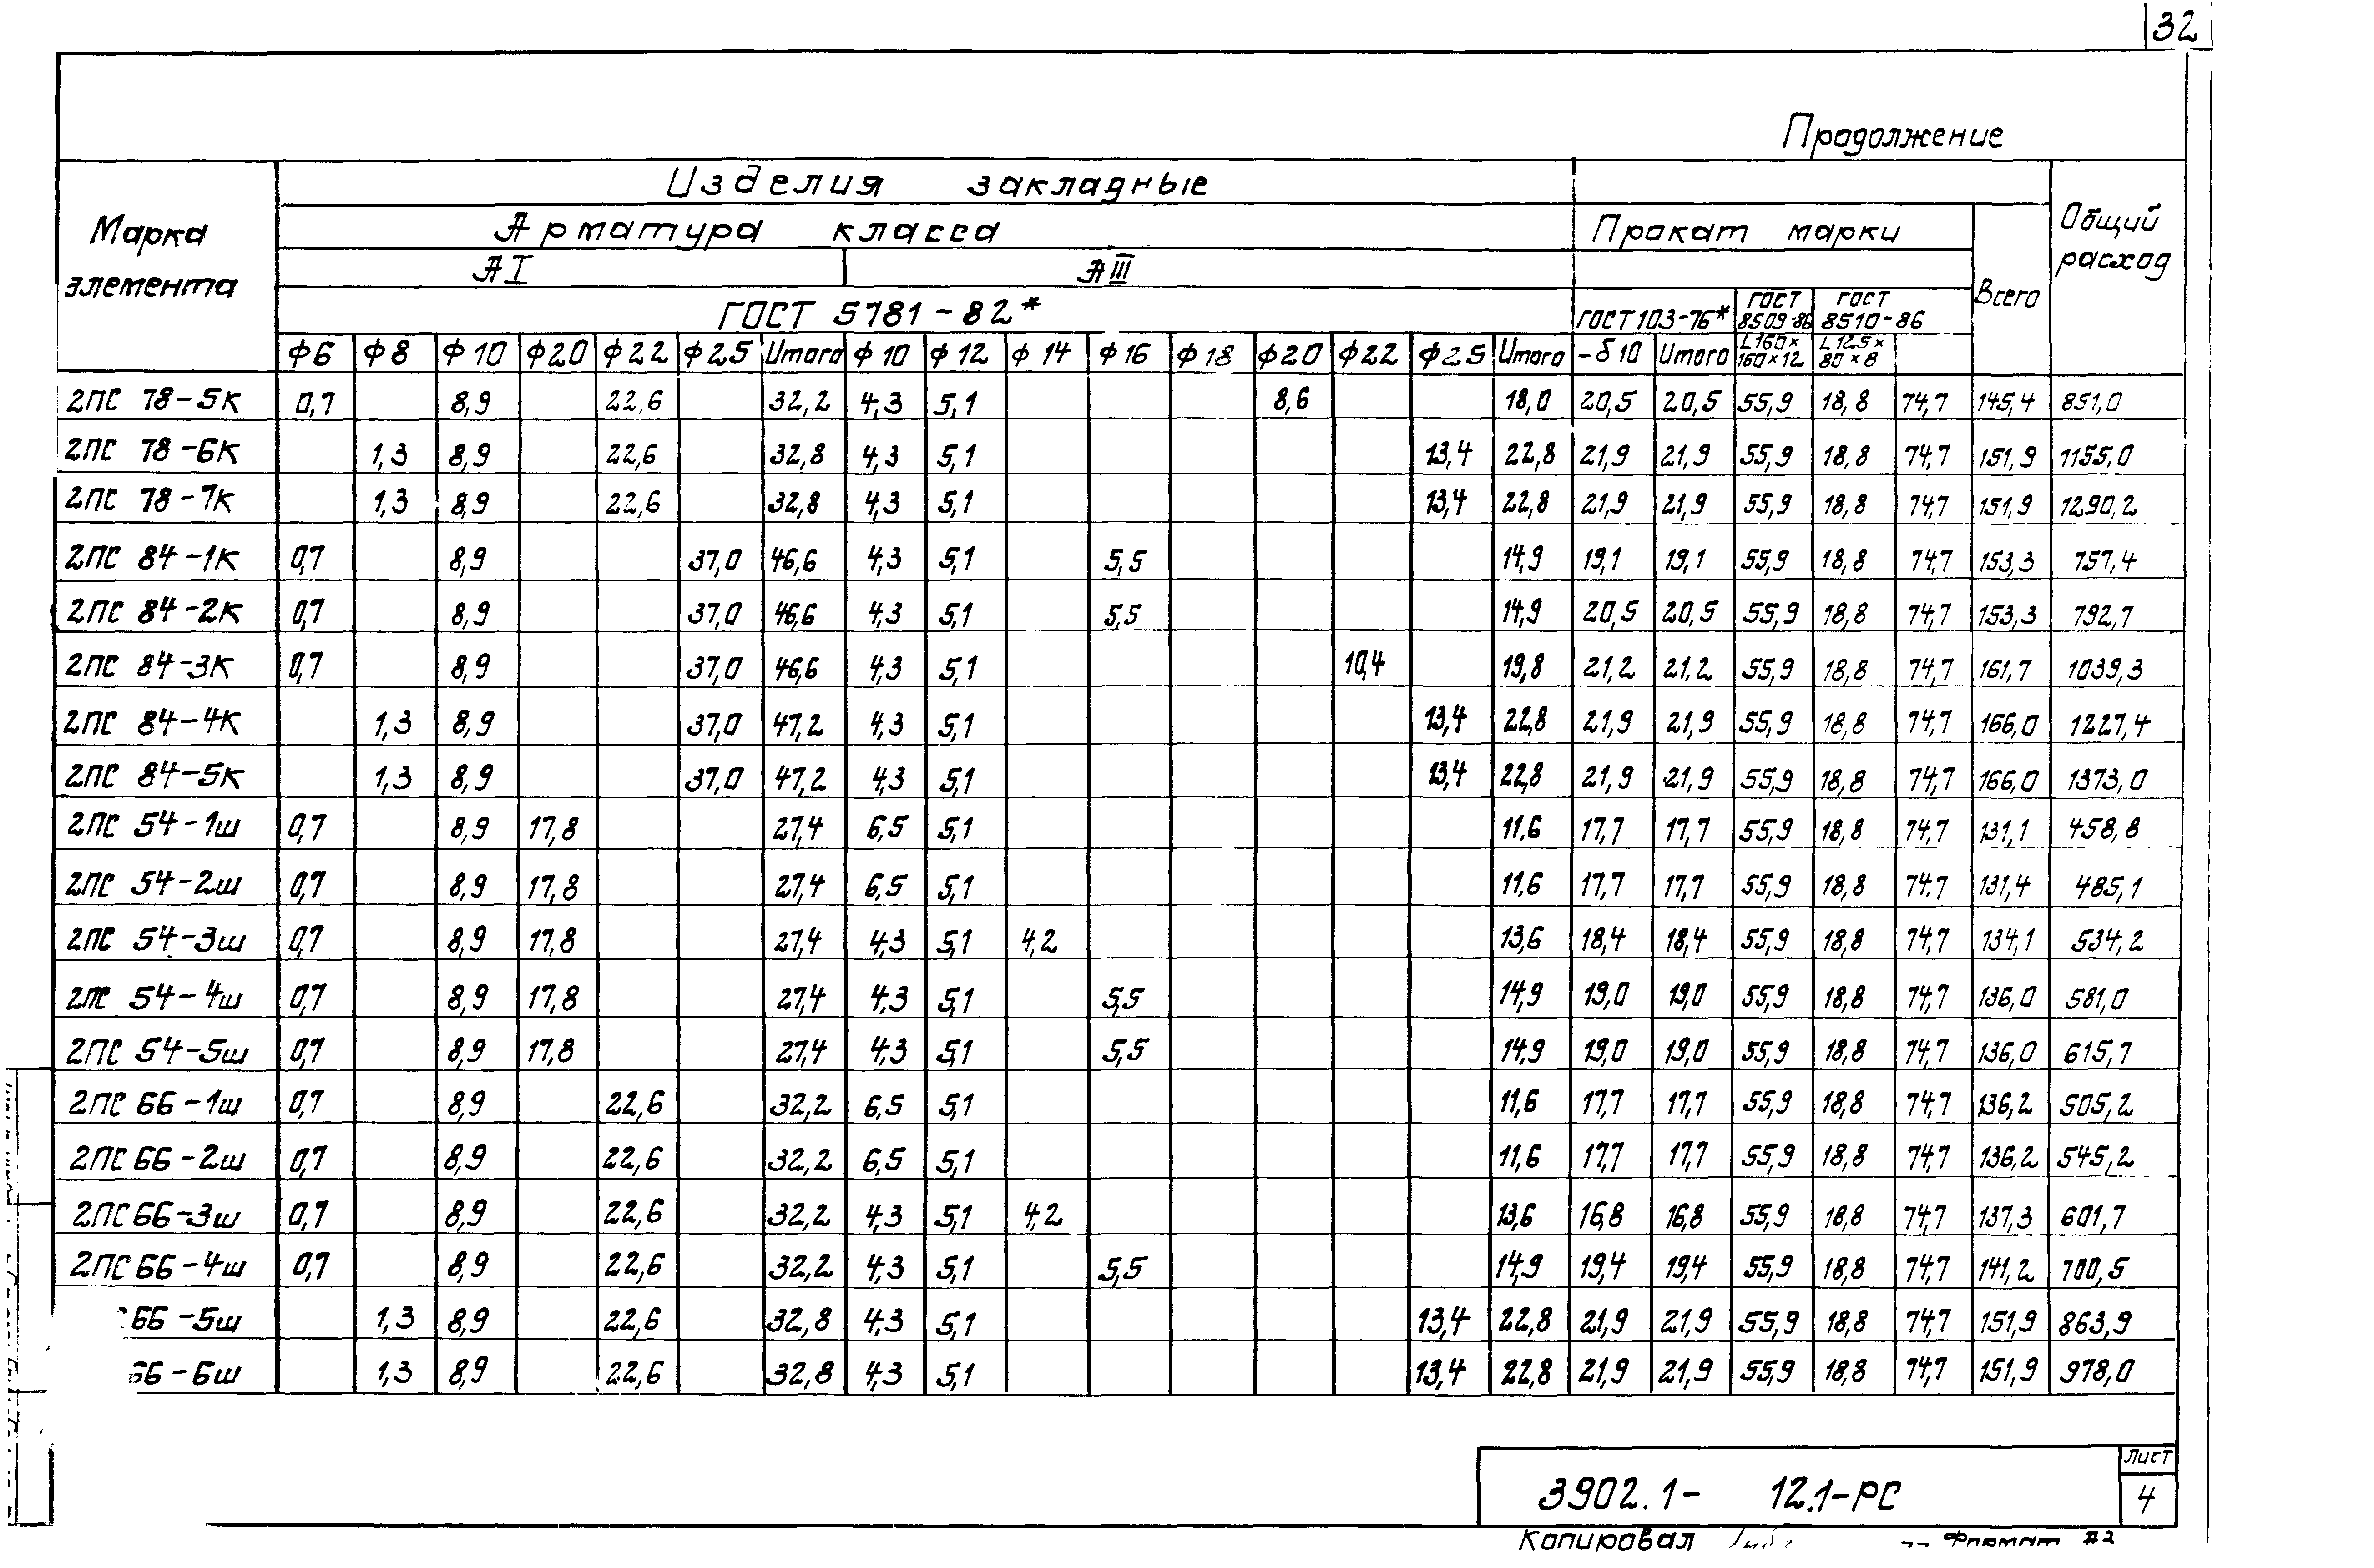 32
Продолжение
Марка элемента
Изделия закладные
Общий расход
Арматура класса
Прокат марки
Всего
АI
АIII
ГОСТ 5781-82*
ГОСТ 103-76*
ГОСТ 8509-86
ГОСТ 8510-86
Ф6 Ф8 Ф10 Ф20 Ф22 Ф25 Итого Ф10 Ф12 Ф14 Ф16 Ф18 Ф20 Ф22 Ф25 Итого -δ10 Итого L160×160×12 L125×80×8
2ПС 78-5К 0,7 8,9 22,6 32,2 4,3 5,1 8,6 18,0 20,5 20,5 55,9 18,8 74,7 145,4 851,0
2ПС 78-6К 1,3 8,9 22,6 32,8 4,3 5,1 13,4 22,8 21,9 21,9 55,9 18,8 74,7 151,9 1155,0
2ПС 78-7К 1,3 8,9 22,6 32,8 4,3 5,1 13,4 22,8 21,9 21,9 55,9 18,8 74,7 151,9 1290,2
2ПС 84-1К 0,7 8,9 37,0 46,6 4,3 5,1 5,5 14,9 19,1 19,1 55,9 18,8 74,7 153,3 757,4
2ПС 84-2К 0,7 8,9 37,0 46,6 4,3 5,1 5,5 14,9 20,5 20,5 55,9 18,8 74,7 153,3 792,7
2ПС 84-3К 0,7 8,9 37,0 46,6 4,3 5,1 10,4 19,8 21,2 21,2 55,9 18,8 74,7 161,7 1039,3
2ПС 84-4К 1,3 8,9 37,0 47,2 4,3 5,1 13,4 22,8 21,9 21,9 55,9 18,8 74,7 166,0 1227,4
2ПС 84-5К 1,3 8,9 37,0 47,2 4,3 5,1 13,4 22,8 21,9 21,9 55,9 18,8 74,7 166,0 1373,0
2ПС 54-1ш 0,7 8,9 17,8 27,4 6,5 5,1 11,6 17,7 17,7 55,9 18,8 74,7 131,1 458,8
2ПС 54-2ш 0,7 8,9 17,8 27,4 6,5 5,1 11,6 17,7 17,7 55,9 18,8 74,7 131,4 485,1
2ПС 54-3ш 0,7 8,9 17,8 27,4 4,3 5,1 4,2 13,6 18,4 18,4 55,9 18,8 74,7 134,1 534,2
2ПС 54-4ш 0,7 8,9 17,8 27,4 4,3 5,1 5,5 14,9 19,0 19,0 55,9 18,8 74,7 136,0 581,0
2ПС 54-5ш 0,7 8,9 17,8 27,4 4,3 5,1 5,5 14,9 19,0 19,0 55,9 18,8 74,7 136,0 615,7
2ПС 66-1ш 0,7 8,9 22,6 32,2 6,5 5,1 11,6 17,7 17,7 55,9 18,8 74,7 136,2 505,2
2ПС 66-2ш 0,7 8,9 22,6 32,2 6,5 5,1 11,6 17,7 17,7 55,9 18,8 74,7 136,2 545,2
2ПС 66-3ш 0,7 8,9 22,6 32,2 4,3 5,1 4,2 13,6 16,8 16,8 55,9 18,8 74,7 137,3 601,7
2ПС 66-4ш 0,7 8,9 22,6 32,2 4,3 5,1 5,5 14,9 19,4 19,4 55,9 18,8 74,7 141,2 700,5
66-5ш 1,3 8,9 22,6 32,8 4,3 5,1 13,4 22,8 21,9 21,9 55,9 18,8 74,7 151,9 863,9
66-6ш 1,3 8,9 22,6 32,8 4,3 5,1 13,4 22,8 21,9 21,9 55,9 18,8 74,7 151,9 978,0
3902.1- 12.1-РС
Лист
4
Копировал
Формат А3